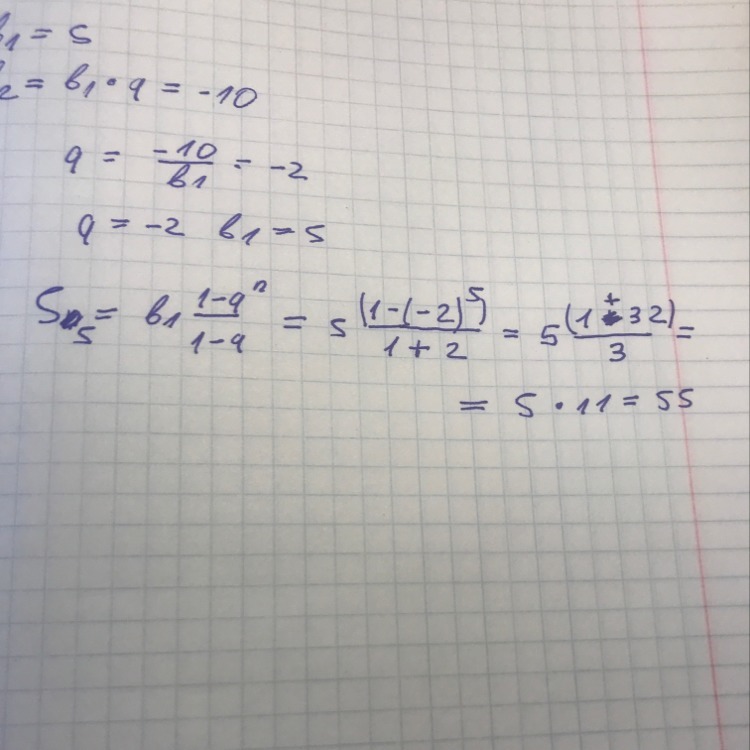 b₁ = 5
b₂ = b₁ · q = -10
q = -10/b₁ = -2
q = -2 b₁ = 5
S₅ = b₁ (1-qⁿ)/(1-q) = 5 (1-(-2)⁵)/(1+2) = 5 (1+32)/3 =
= 5 · 11 = 55